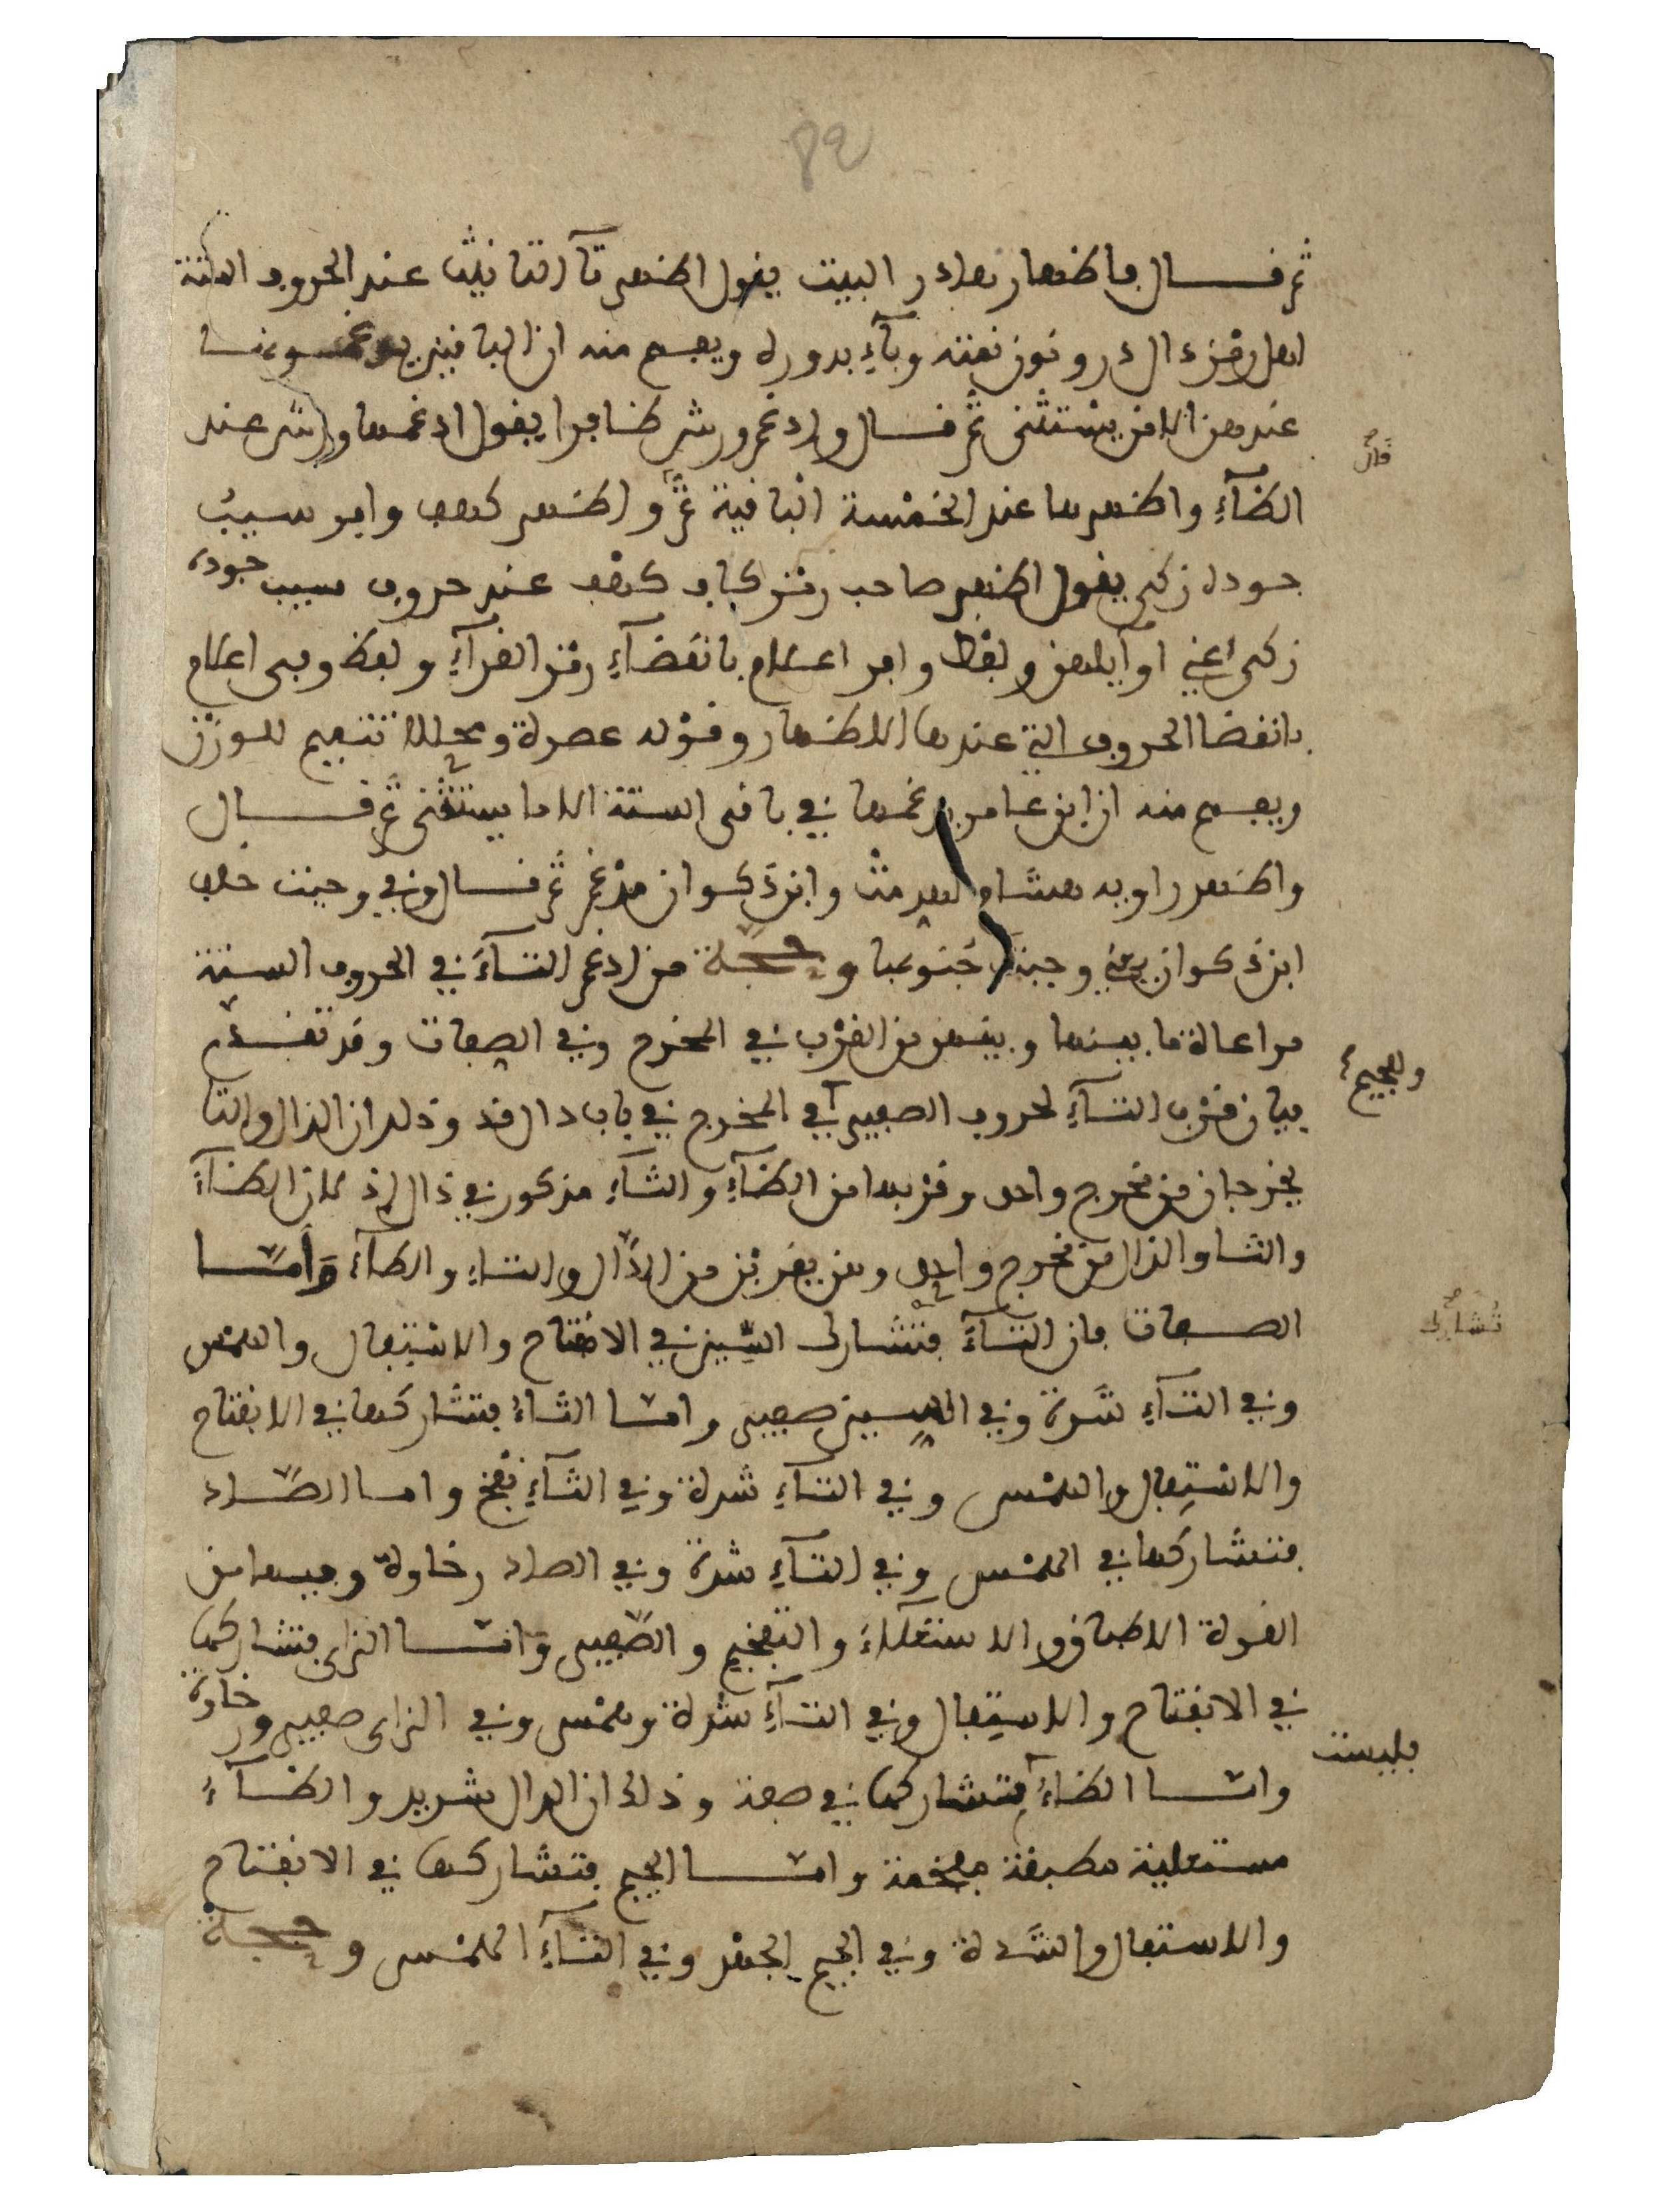 ثم قال فاظهار هادر البيت يقول اظهر تآ التانيث عند الحروف الستة
اهل رمز دال در ونون نمته وبآء بدوره ويفهم منه ان الباقين يدغمونها
عندهن الا من يستثنى ثم قال وادغم ورش ظافرا يقول ادغمها ورش عند
قال
الظآء واظهرها عند الخمسة الباقية ثم واظهر كهف وافر سيب
جوده زكى يقول اظهر صاحب رمز كاف كهف عند حروف سيب جوده
زكى اعني اوآيلهن ولفظ وافر اعلام بانقضآء رمز القرآء ولفظ وفى اعلام
بانقضا الحروف التي عندها الاظهار وقوله عصرة ومحللا تتميم للوزن
ويفهم منه ان ابن عامر يدغمها في باقى الستة الا ما يستثنى ثم قال
واظهر راويه هشام لهدمت وابن ذكوان مدغم ثم قال وفي وجبت خلف
ابن ذكوان يعني وجبت جنوبها وحجة من ادغم التآء في الحروف الستة
مراعاة ما بينها وبينهن من القرب في المخرج وفي الصفات وقد تقدم
بيان قرب التآء لحروف الصفير في المخرج في باب دال قد وذلك ان الدال والتا
وللجيم
يخرجان من مخرج واحد وقربها من الظآء والثآء مذكور في ذال اذ لان الظآء
والثا والذال من مخرج واحد وهن يقربن من الدال والتاء والطآء وأما
الصفات فان التآء فتشارك السين في الانفتاح والاستفال والهمس
تشارك
وفي التآء شدة وفي السين صفير واما الثاء فتشاركها في الانفتاح
والاستفال والهمس وفي التاء شدة وفي الثآء نفخ واما الصاد
فتشاركها في الهمس وفي التآء شدة وفي الصاد رخاوة وفيها من
القوة الاطباق والاستعلاء والتفخيم والصفير واما الزاى فتشاركها
في الانفتاح والاستفال وفي التآء شدة وهمس وفي الزاى صفير ورخاوة
واما الظاء فتشاركها في صفة وذلك ان الدال شديد والظآء
فليست
مستعلية مطبقة مفخمة واما الجيم فتشاركها في الانفتاح
والاستفال والشدة وفي الجيم الجهر وفي التآء الهمس وحجة